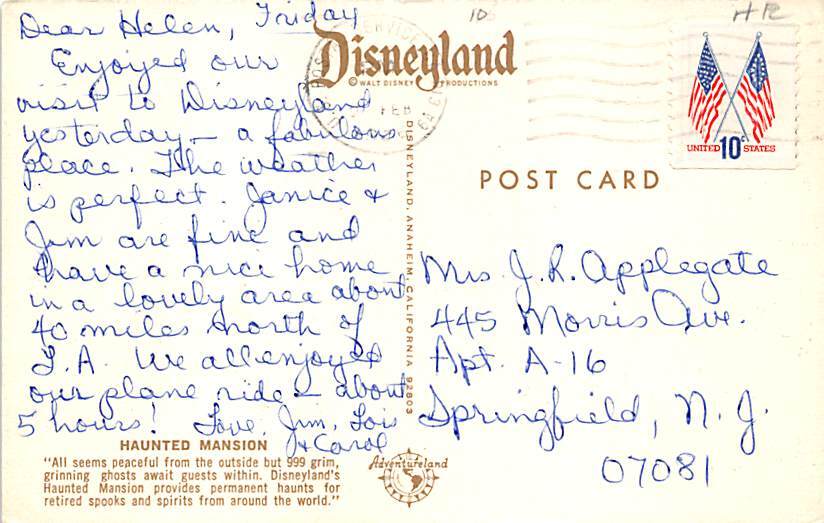 Dear Helen, Friday
Enjoyed our
visit to Disneyland
yesterday – a fabulous
place. The weather
is perfect. Janice &
Jim are fine and
have a nice home
in a lovely area about
40 miles north of
L.A. We all enjoyed
our plane ride – about
5 hours! Love, Jim, Lois
& Carol
HAUNTED MANSION
"All seems peaceful from the outside but 999 grim,
grinning ghosts await guests within. Disneyland's
Haunted Mansion provides permanent haunts for
retired spooks and spirits from around the world."
Disneyland
© WALT DISNEY PRODUCTIONS
DISNEYLAND, ANAHEIM, CALIFORNIA 92803
Adventureland
10
HR
FEB
CA
UNITED 10c STATES
POST CARD
Mrs J. R. Applegate
445 Morris Ave.
Apt. A-16
Springfield, N. J.
07081